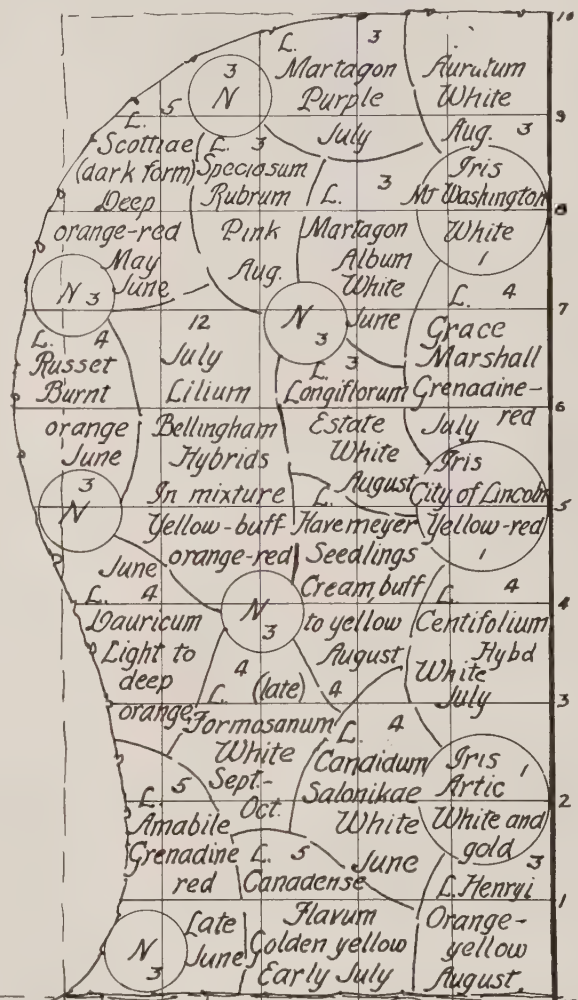 10
L. 3
Martagon
Purple
July
Auratum
White
Aug. 3
3
N
9
L. 5
Scottiae
(dark form)
Deep
orange-red
May
June
L. 3
Speciosum
Rubrum
Pink
Aug.
L. 3
Martagon
Album
White
June
Iris
Mt Washington
White
1
8
N 3
7
N
3
L. 4
Grace
Marshall
Grenadine-
red
July
L. 4
Russet
Burnt
orange
June
12
July
Lilium
Bellingham
Hybrids
In mixture
Yellow-buff
orange-red
L. 3
Longiflorum
Estate
White
August
6
Iris
City of Lincoln
Yellow-red
1
3
N
5
L.
Havemeyer
Seedlings
Cream, buff
to yellow
August
4
June
L. 4
Dauricum
Light to
deep
orange
N
3
4
L. 4
Centifolium
Hybd
White
July
4
L. (late)
Formosanum
White
Sept.-
Oct.
3
L. 4
Candidum
Salonikae
White
June
Iris
Artic 1
White and
gold
2
L. 5
Amabile
Grenadine
red
Late
June
L. 5
Canadense
Flavum
Golden yellow
Early July
3
L. Henryi
Orange-
yellow
August
1
N
3